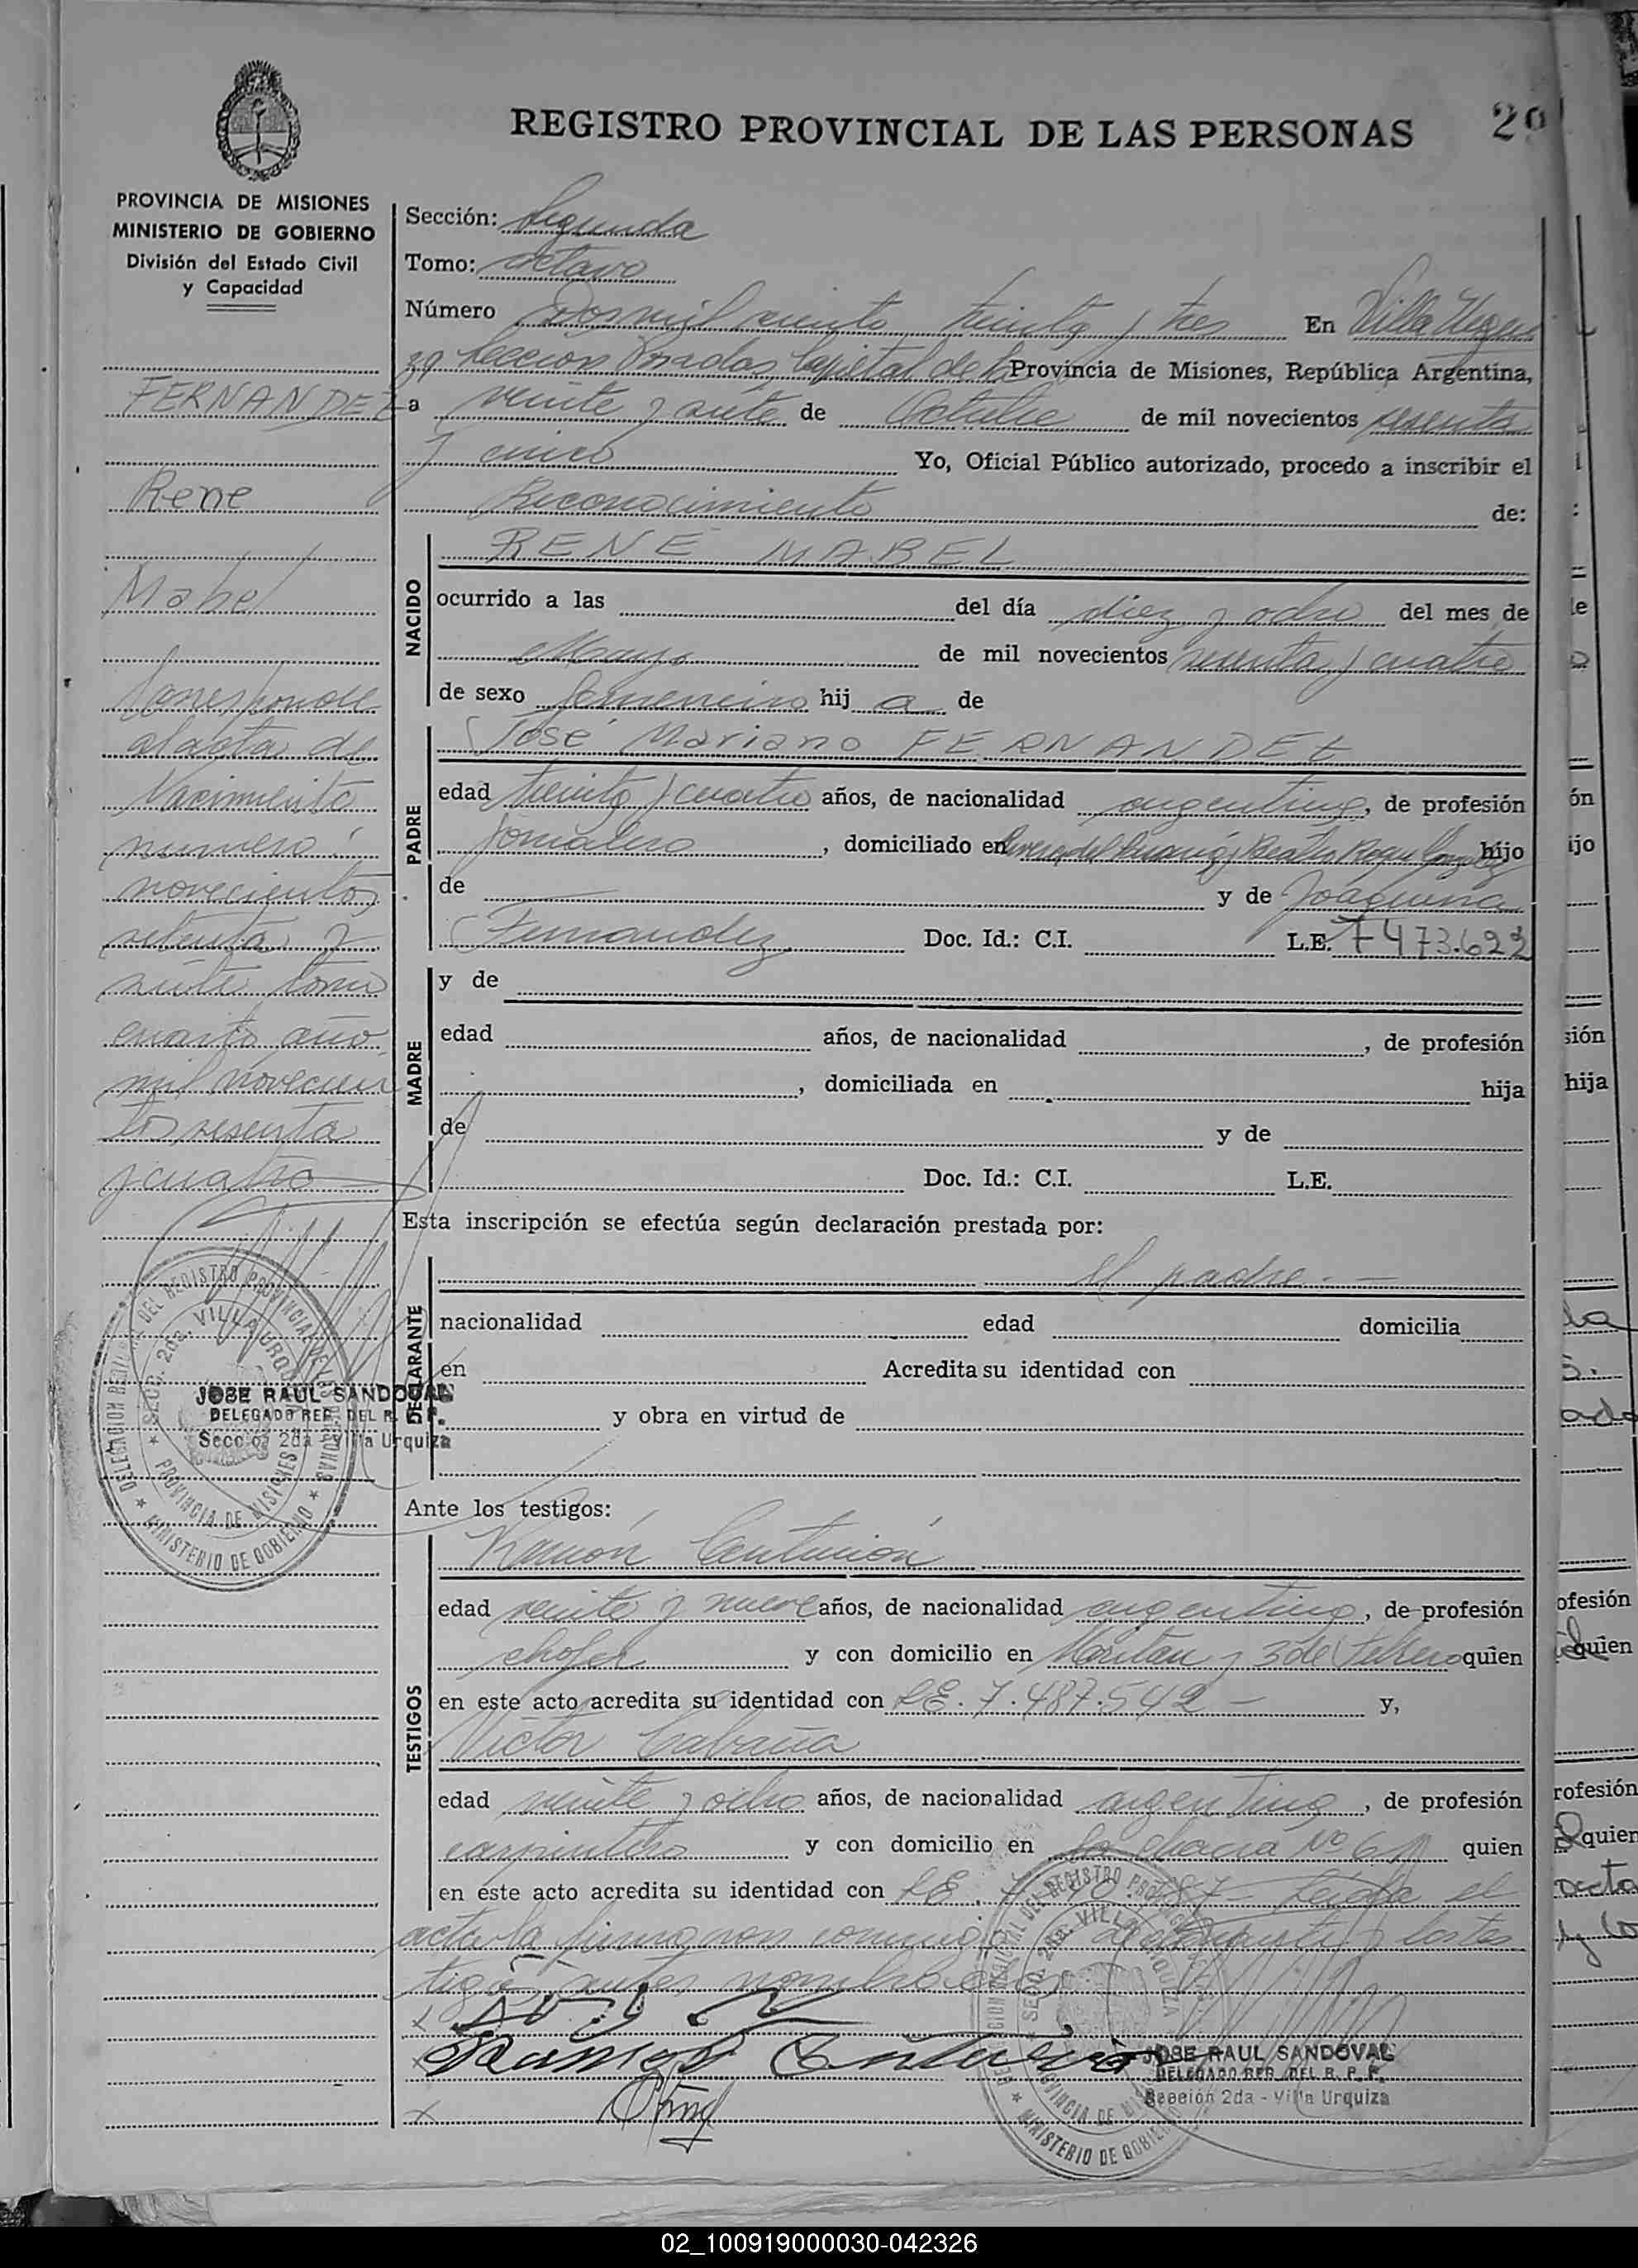 REGISTRO PROVINCIAL DE LAS PERSONAS
29
PROVINCIA DE MISIONES
MINISTERIO DE GOBIERNO
División del Estado Civil
y Capacidad
FERNANDEZ
Rene
Mabel
Corresponde
al acta de
Nacimiento
numero:
novecientos
setenta y
siete tomo
cuarto año
mil novecien
tos sesenta
y cuatro
JOSE RAUL SANDOVAL
DELEGADO REG. DEL R. P. P.
Sección 2da - Villa Urquiza
DELEGACION REGIONAL DEL REGISTRO PROVINCIAL DE LAS PERSONAS
SECC. 2da. VILLA URQUIZA
PROVINCIA DE MISIONES
MINISTERIO DE GOBIERNO
Sección: Segunda
Tomo: octavo
Número Dos mil ciento treinta y tres En Villa Urqui
za Sección Posadas, Capital de la Provincia de Misiones, República Argentina,
a veinte y siete de Octubre de mil novecientos sesenta
y cinco Yo, Oficial Público autorizado, procedo a inscribir el
Reconocimiento de:
NACIDO
RENE MABEL
ocurrido a las del día diez y ocho del mes de
Mayo de mil novecientos sesenta y cuatro
de sexo femenino hij a de
PADRE
José Mariano FERNANDEZ
edad treinta y cuatro años, de nacionalidad argentina, de profesión
Jornalero, domiciliado en y Beato Roque González hijo
de y de Joaquina
Fernandez Doc. Id.: C.I. L.E. 7473.622
MADRE
y de
edad años, de nacionalidad , de profesión
, domiciliada en hija
de y de
Doc. Id.: C.I. L.E.
Esta inscripción se efectúa según declaración prestada por:
DECLARANTE
el padre.-
nacionalidad edad domicilia
en Acredita su identidad con
y obra en virtud de
Ante los testigos:
TESTIGOS
Ramón Centurión
edad veinte y nueve años, de nacionalidad argentina, de profesión
chofer y con domicilio en y 3 de Febrero quien
en este acto acredita su identidad con L.E. 7.487.542 - y,
Victor Cabaña
edad veinte y ocho años, de nacionalidad argentina, de profesión
carpintero y con domicilio en la chacra Nº 61 quien
en este acto acredita su identidad con L.E. Leída el
acta la firman conmigo y los tes
tigos antes nombrados
Ramon Centurion
JOSE RAUL SANDOVAL
DELEGADO REG. DEL R. P. P.
Sección 2da - Villa Urquiza
02_100919000030-042326